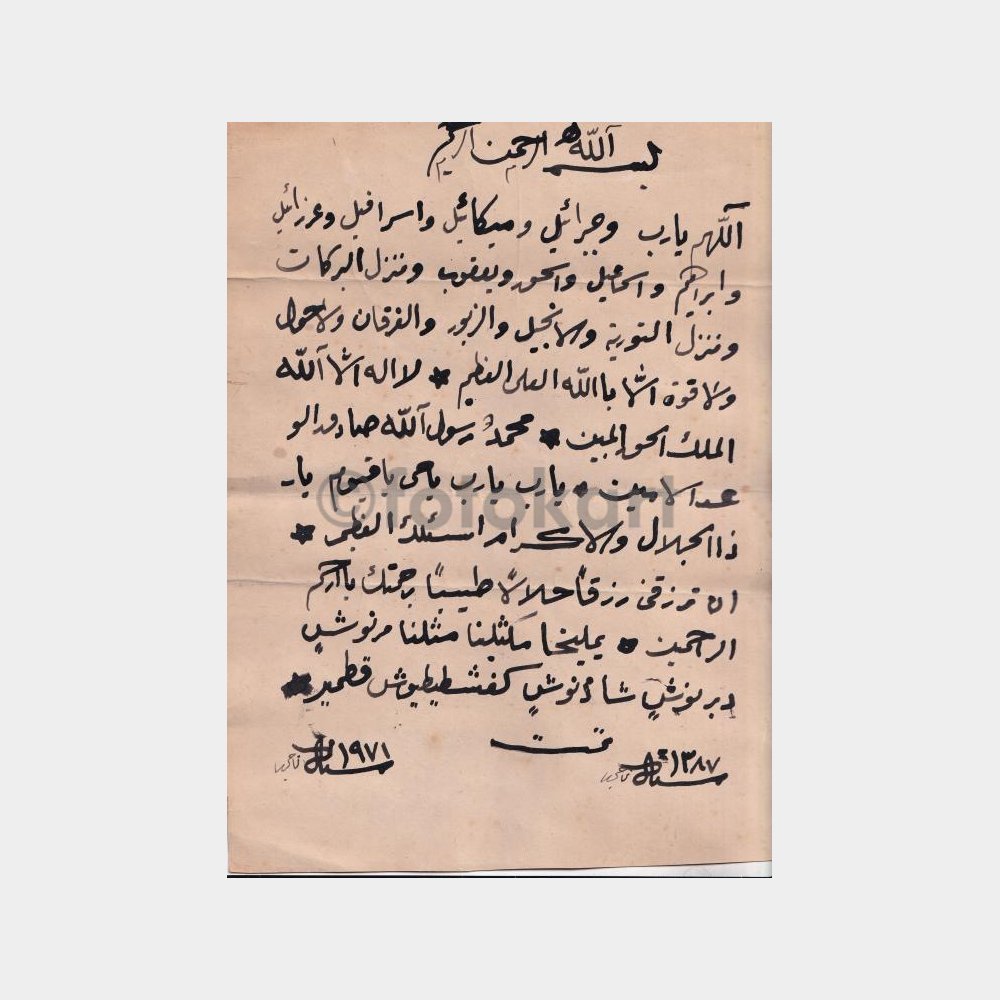 بسم الله الرحمن الرحيم
اللهم يارب وجبرائيل وميكائيل واسرافيل وعزرائيل
وابراهيم واسماعيل واسحق ويعقوب ومنزل البركات
ومنزل التورية والانجيل والزبور والفرقان ولاحول
ولاقوة الا باالله العلى العظيم * لا اله الا الله
الملك الحق المبين * محمد رسول الله صادق الو
عد الامين * يارب يارب ياحى ياقيوم يا
ذا الجلال والاكرام اسئلك العظيم *
ان ترزقنى رزقاً حلالاً طيباً برحمتك ياارحم
الرحمين * يمليخا مكثلينا مثلنا مرنوشٍ
دبرنوشٍ شاذنوشٍ كفشططيوش قطمير *
تمت
سنه ١٣٨٧
سنه ١٩٧١
©fotokart